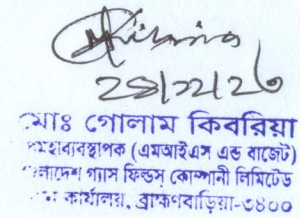 ২৪/১২/২৩
মোঃ গোলাম কিবরিয়া
মহাব্যবস্থাপক (এমআইএস এন্ড বাজেট)
বাংলাদেশ গ্যাস ফিল্ডস্ কোম্পানী লিমিটেড
কার্যালয়, ব্রাহ্মণবাড়িয়া-৩৪০০